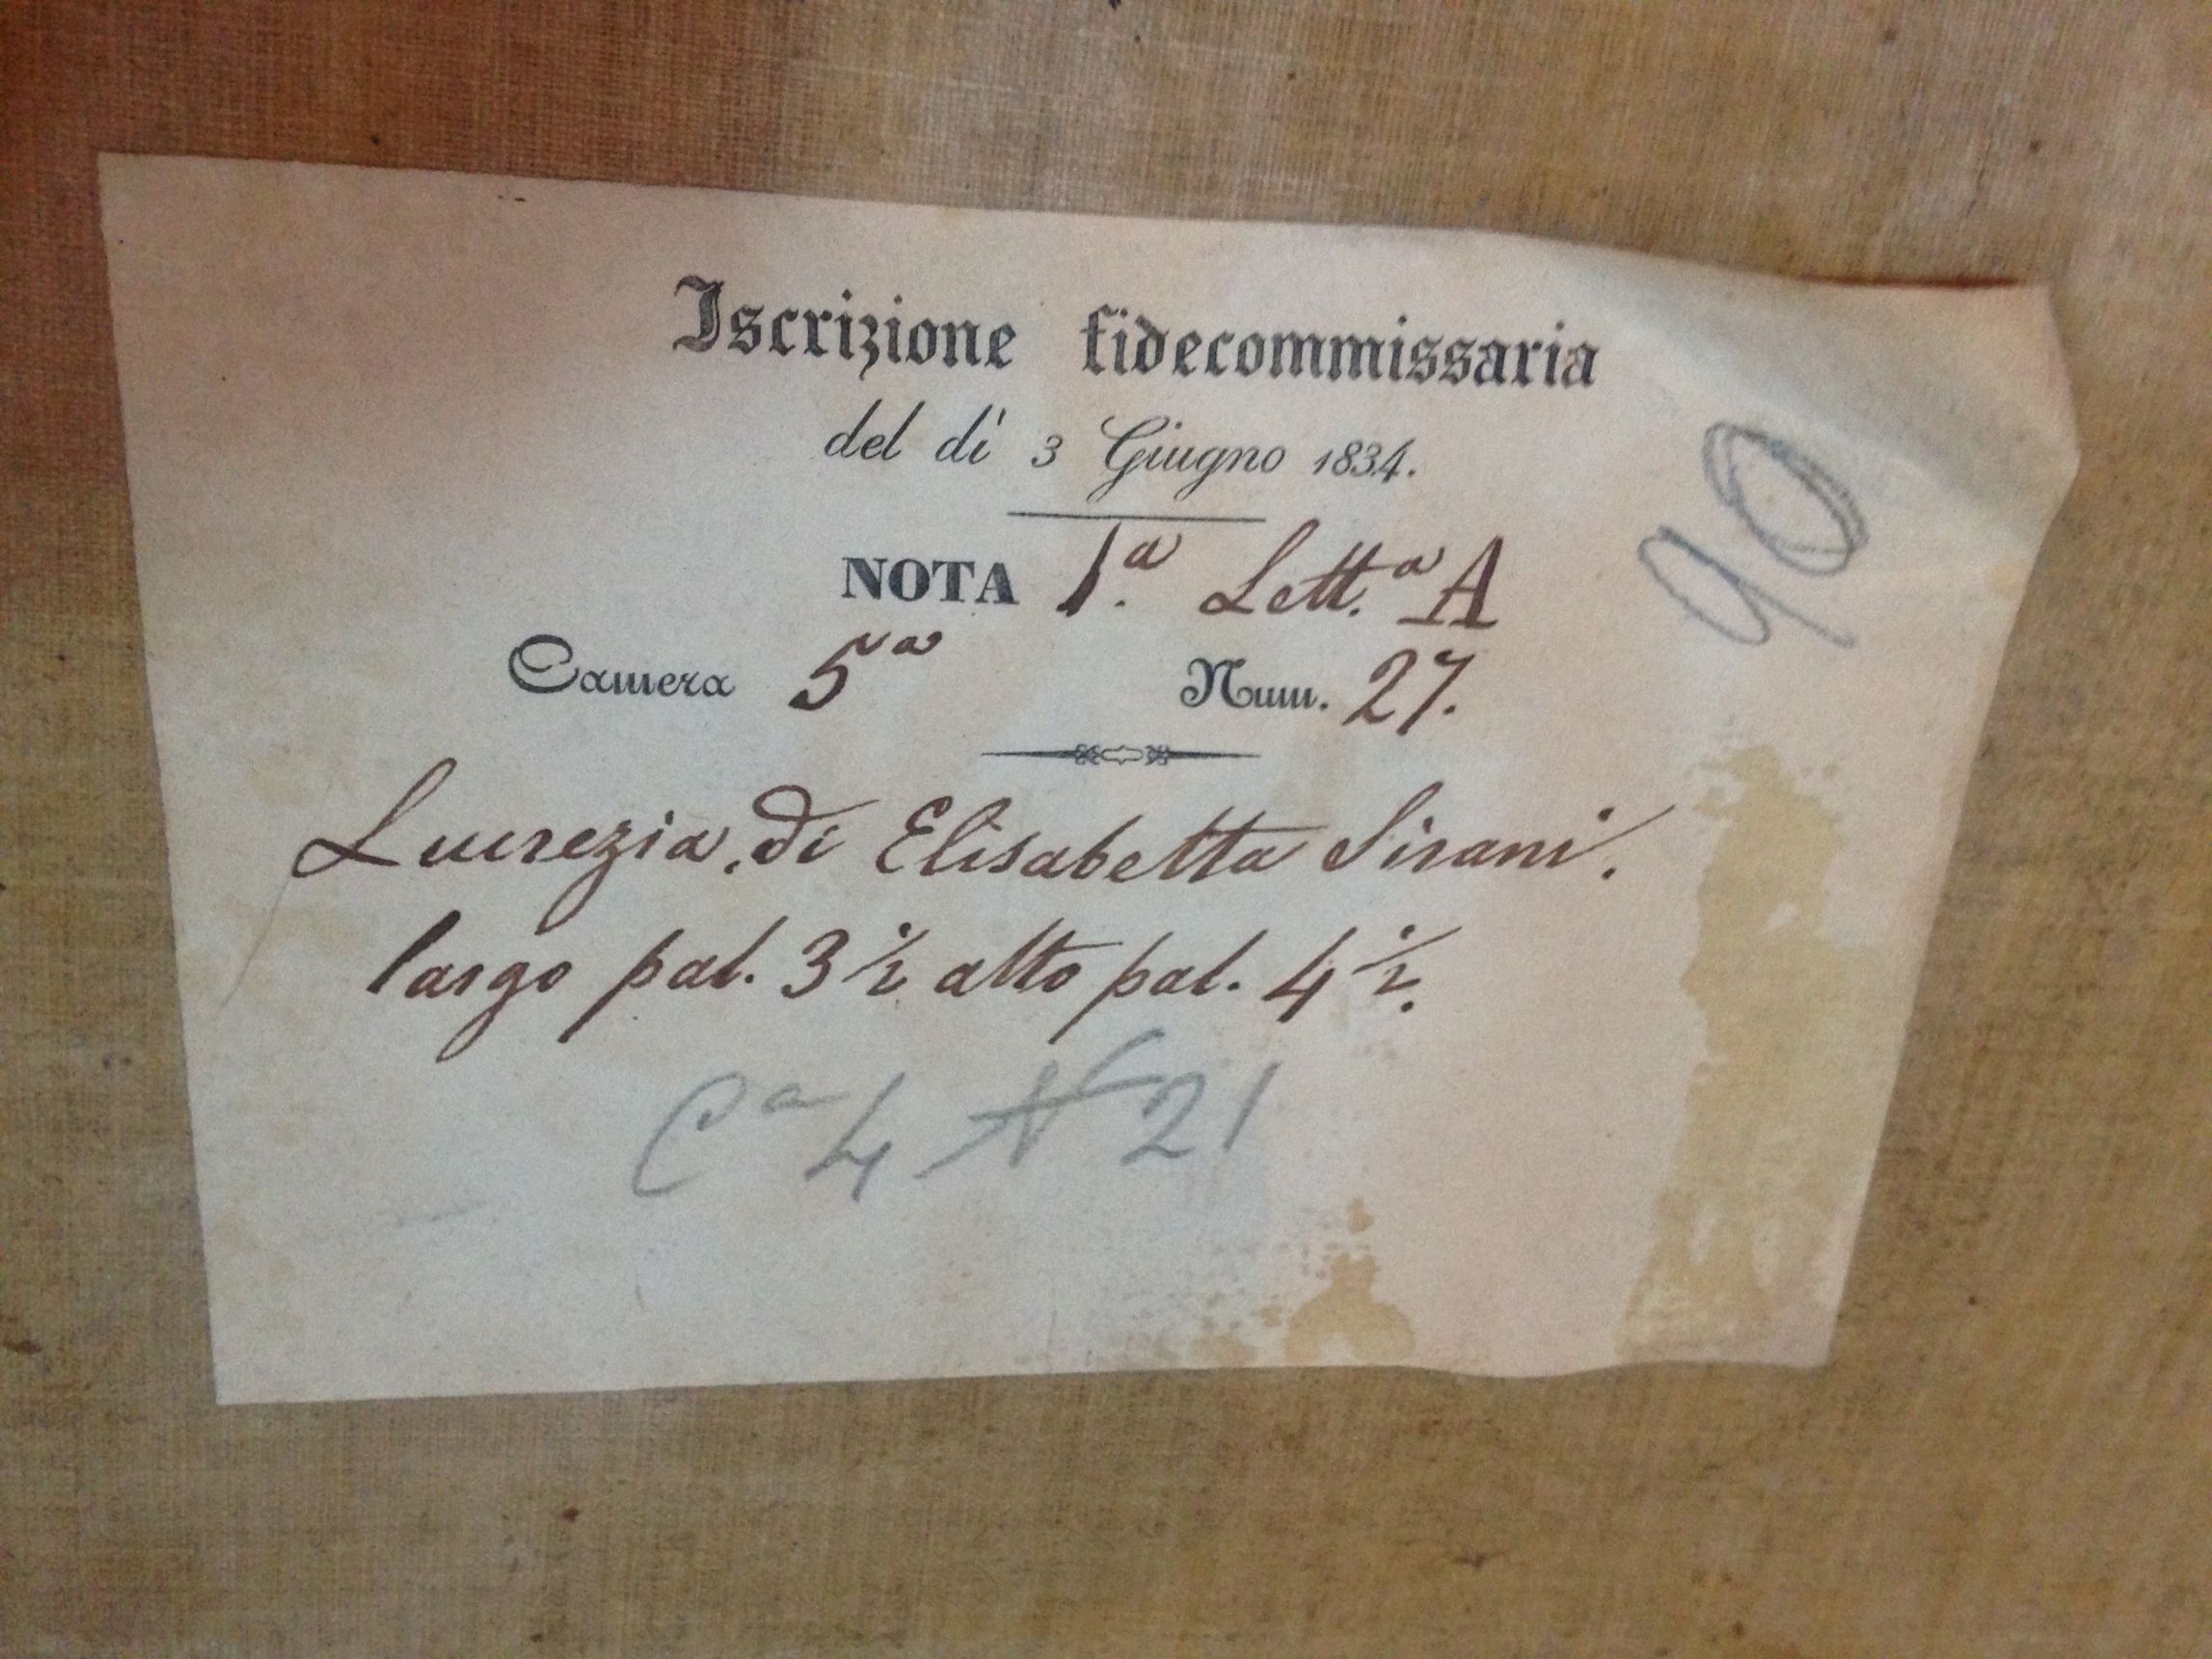 Iscrizione fidecommissaria
del dì 3 Giugno 1834.
NOTA 1.ª Lett.ª A
90
Camera 5ª Num. 27.
Lucrezia, di Elisabetta Sirani.
largo pal. 3 ½ alto pal. 4 ½.
Cª 4 N 21